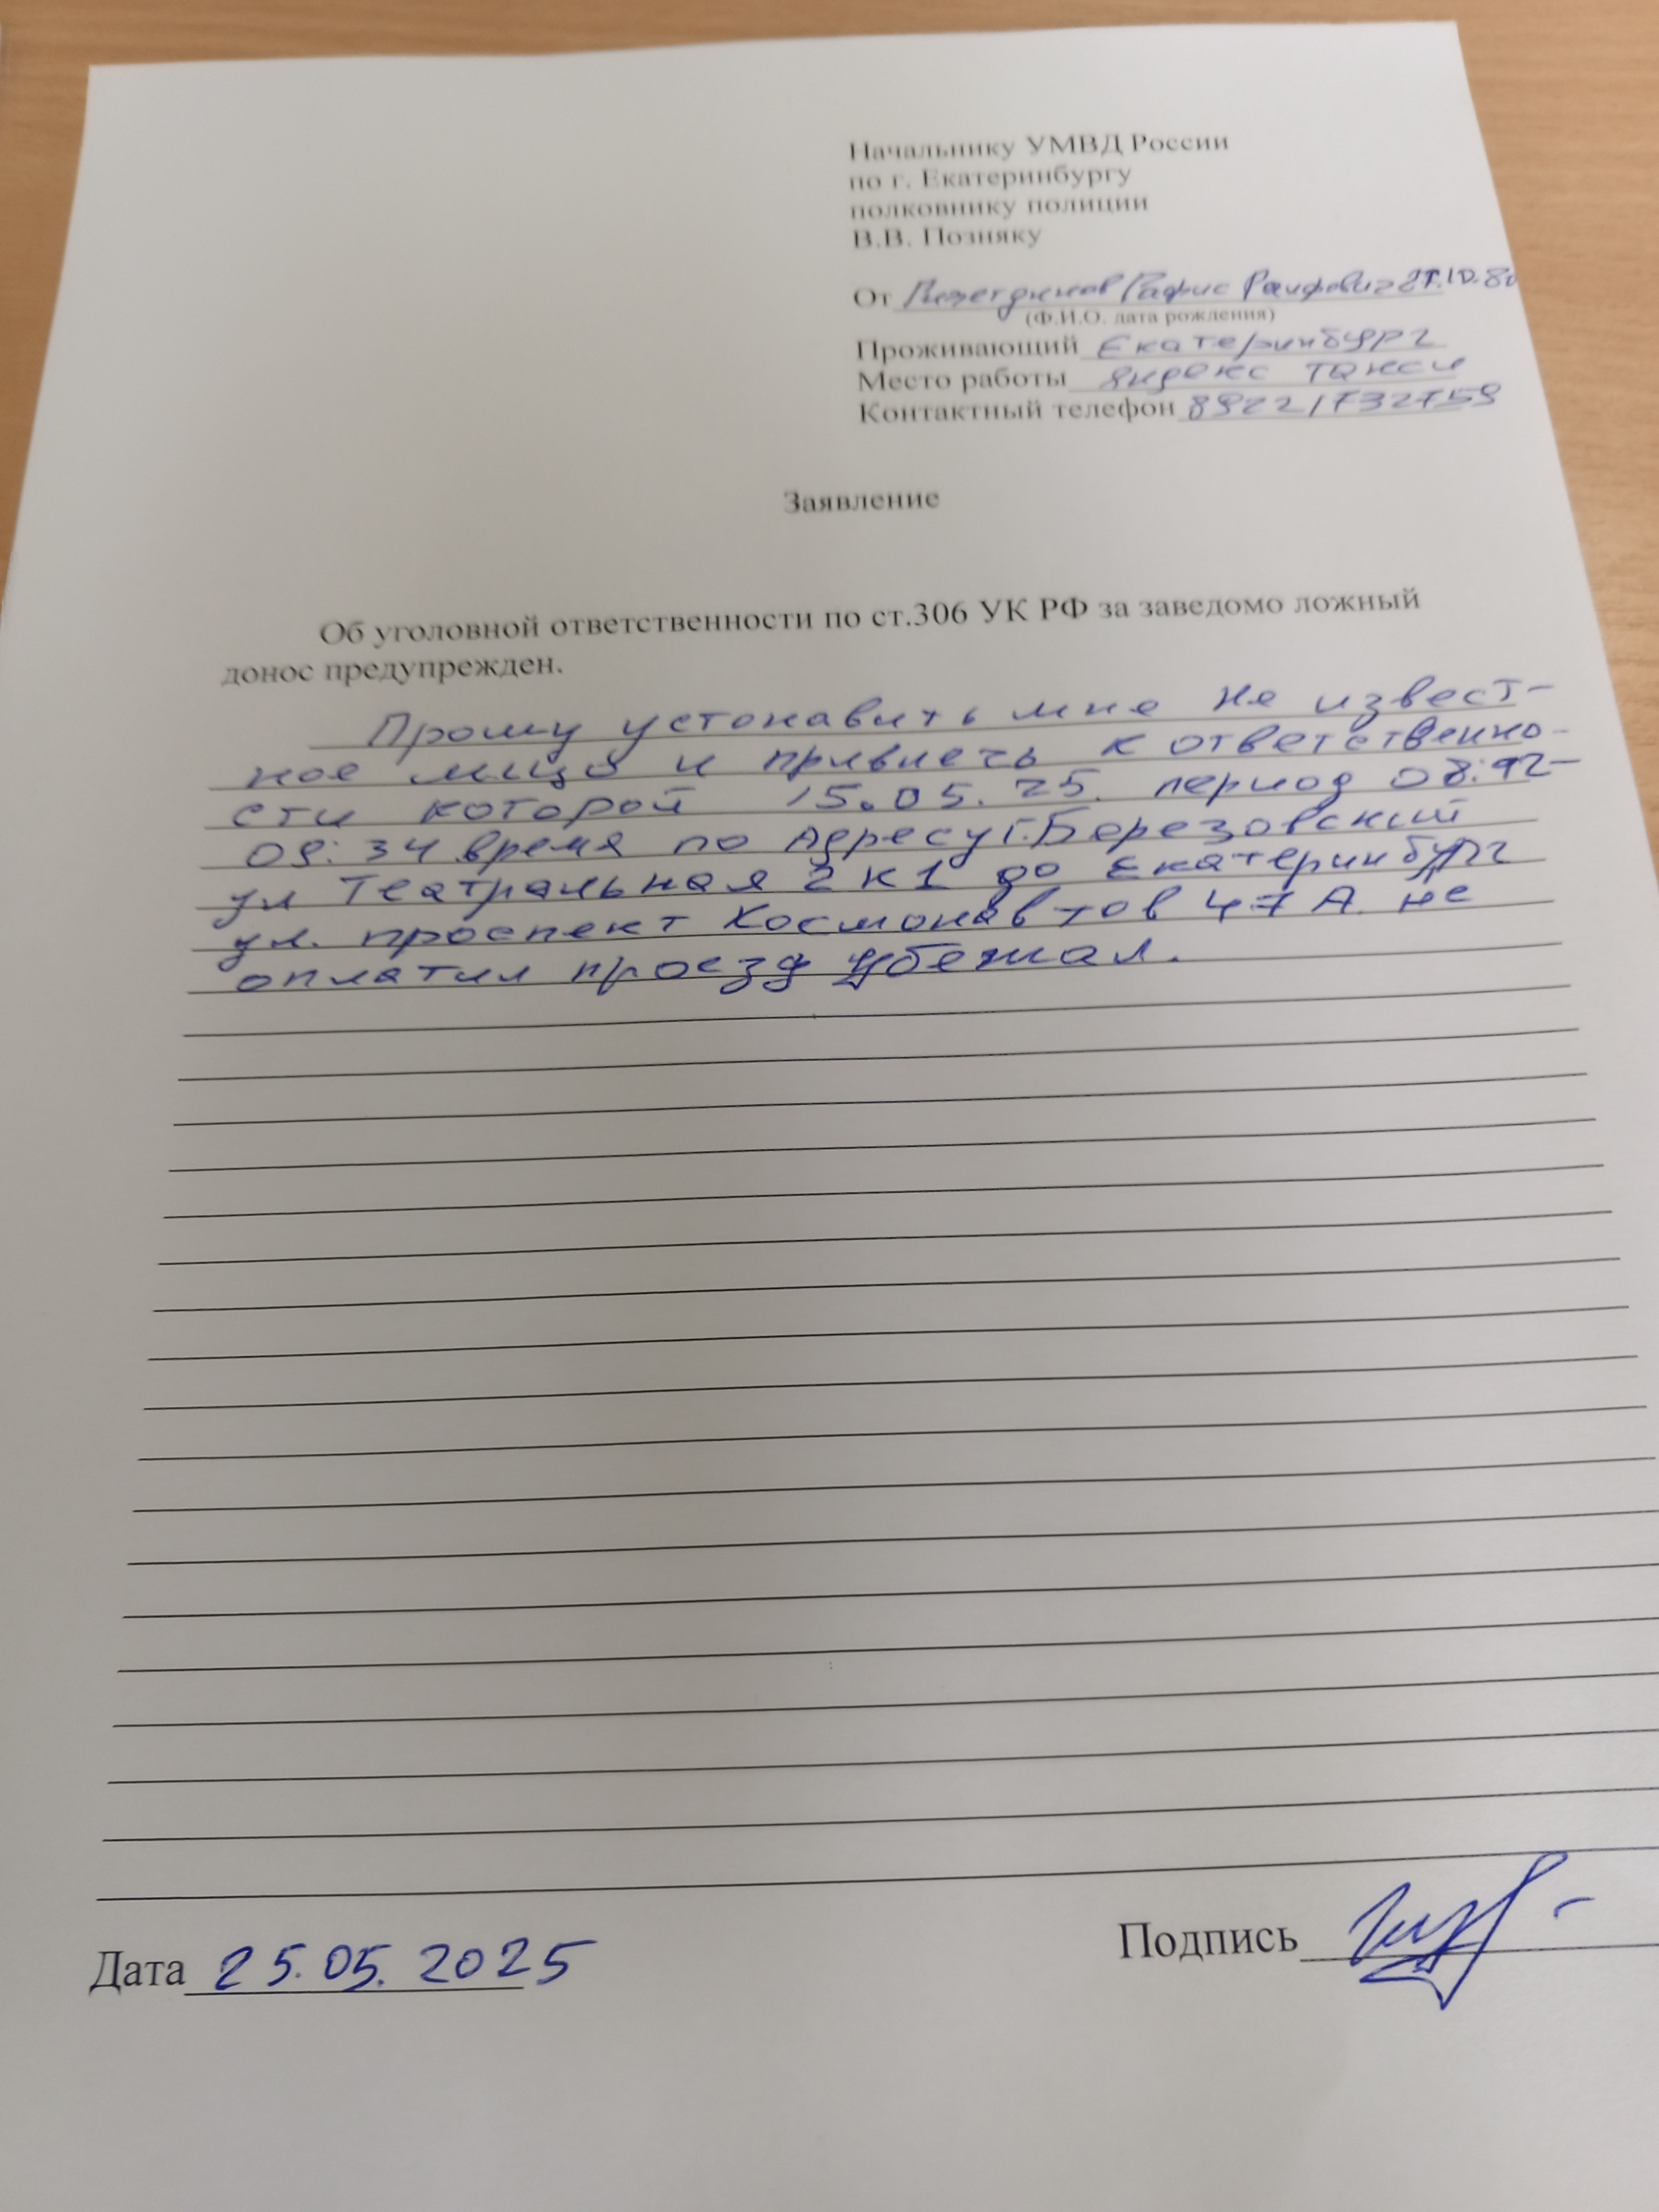 Начальнику УМВД России
по г. Екатеринбургу
полковнику полиции
В.В. Позняку
От Рафис Раифович 27.10.80
(Ф.И.О. дата рождения)
Проживающий Екатеринбург
Место работы яндекс такси
Контактный телефон 89221732759
Заявление
Об уголовной ответственности по ст.306 УК РФ за заведомо ложный
донос предупрежден.
Прошу устонавить мне не извест-
ное лицо и привлечь к ответственно-
сти которой 15.05.25. период 08:42-
09:34 время по Адресу г.Березовский
ул Театральная 2к1 до Екатеринбург
ул. проспект Космонавтов 47А не
оплатил проезд убежал.
Дата 25.05.2025
Подпись